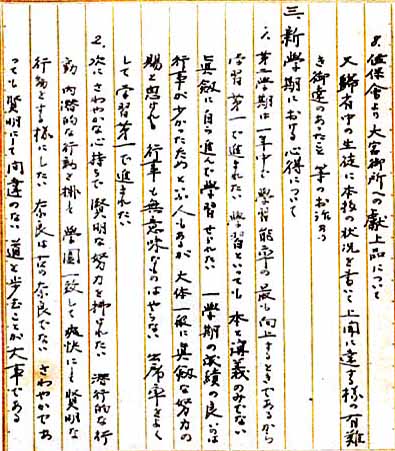 8. 佐保会より大宮御所への献上品について
又 歸省中の生徒に本校の状況を書いて上聞に達する様の有難
き御達のあった事 等のお話あり
三、新学期に於ける心得について
1. 第二学期は一年中で学習能率の最も向上するときであるから
学習第一で進まれたい 学習といっても本と講義のみでない
眞剱に自ら進んで学習せられたい 一学期の成績の良いのは
行事が少かったためといふ人もあるが 大体一般に眞剱な努力の
賜と思はれる 行事も無意味なものはやらない 出席率をよく
して学習第一で進まれたい
2. 次にさわやかな心持ちで賢明な努力を拂はれたい 潜行的な行
動 内潜的な行動を排し 學園一致して爽快にして賢明な
行動をする様にしたい 奈良は一の奈良でない さわやかであ
っても賢明にて間違のない道を歩むことが大事である